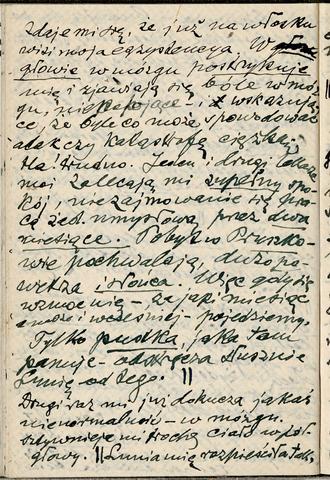 zdaje mi się, że już na włosku
wisi moja egzystencya. W
głowie w mózgu postrzykuje
mię i zjawiają się bóle w móz-
gu, niepokojące, i wskazują-
ce, że byle co może spowodować
atak czy katastrofę ciężką.
Ha trudno. Jeden i drugi lekarz
moi zalecają mi zupełny spo-
kój, niezajmowanie się pra-
cą żed. umysłową przez dwa
miesiące. Pobyt w Prusko-
wie pochwalają, dużo po-
wietrza i słońca. Więc gdy się
wzmocnię - za jaki miesiąc
a może i wcześniej - pojedziemy.
Tylko pudka, jaka tam
panuje - odstręcza Dusznie
Lunię od tego. ||
Drugi raz mi już dokucza jakaś
nienormalność - w mózgu
sztywnieje mi trochę ciało w pół
głowy. || Lunia mię rozpieściła tak,